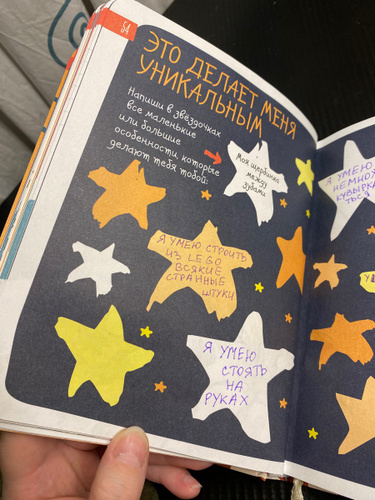 ЭТО ДЕЛАЕТ МЕНЯ
УНИКАЛЬНЫМ
Напиши в звёздочках
все маленькие
или большие
особенности, которые
делают тебя тобой:
Моя щербинка
между
зубами
Я УМЕЮ СТРОИТЬ
ИЗ LEGO
ВСЯКИЕ
СТРАННЫЕ
ШТУКИ
Я УМЕЮ
СТОЯТЬ
НА
РУКАХ
Я УМЕЮ
НЕМНОЖ
КУВЫРКА
ТЬСЯ